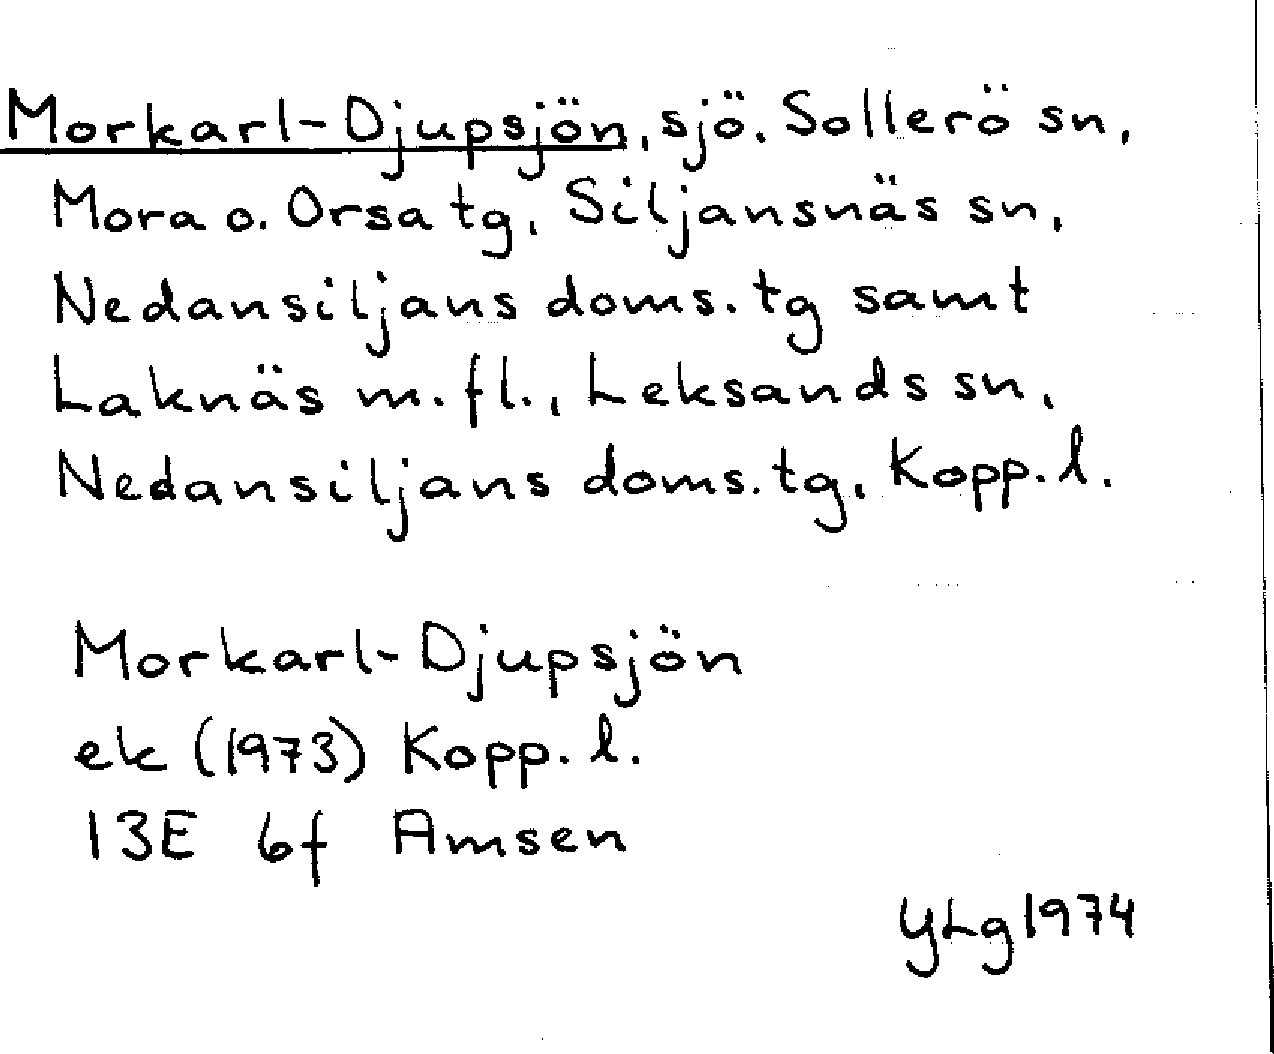 Morkarl-Djupsjön, sjö. Sollerö sn,
Mora o. Orsa tg, Siljansnäs sn,
Nedansiljans doms. tg samt
Laknäs m. fl., Leksands sn,
Nedansiljans doms. tg, Kopp. l.
Morkarl-Djupsjön
ek (1973) Kopp. l.
13E 6f Amsen
YLg 1974